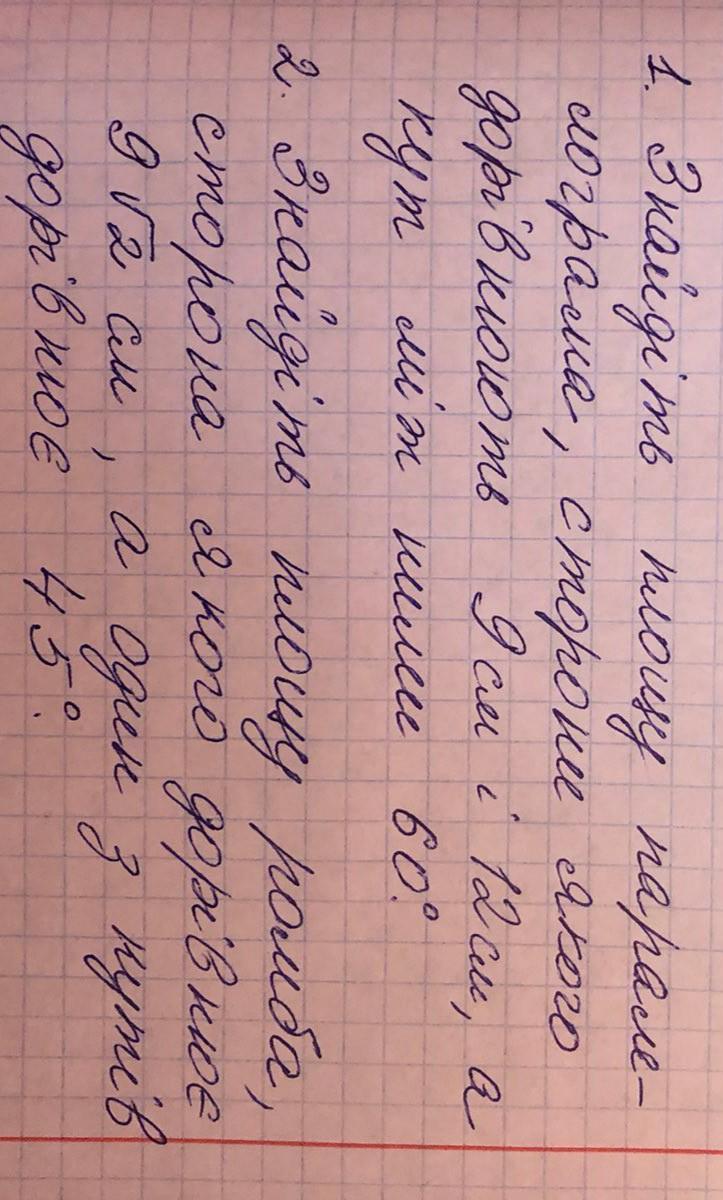 1. Знайдіть площу парале-
лограма, сторони якого
дорівнюють 9 см і 12 см, а
кут між ними 60°.
2. Знайдіть площу ромба,
сторона якого дорівнює
9√2 см, а один з кутів
дорівнює 45°.